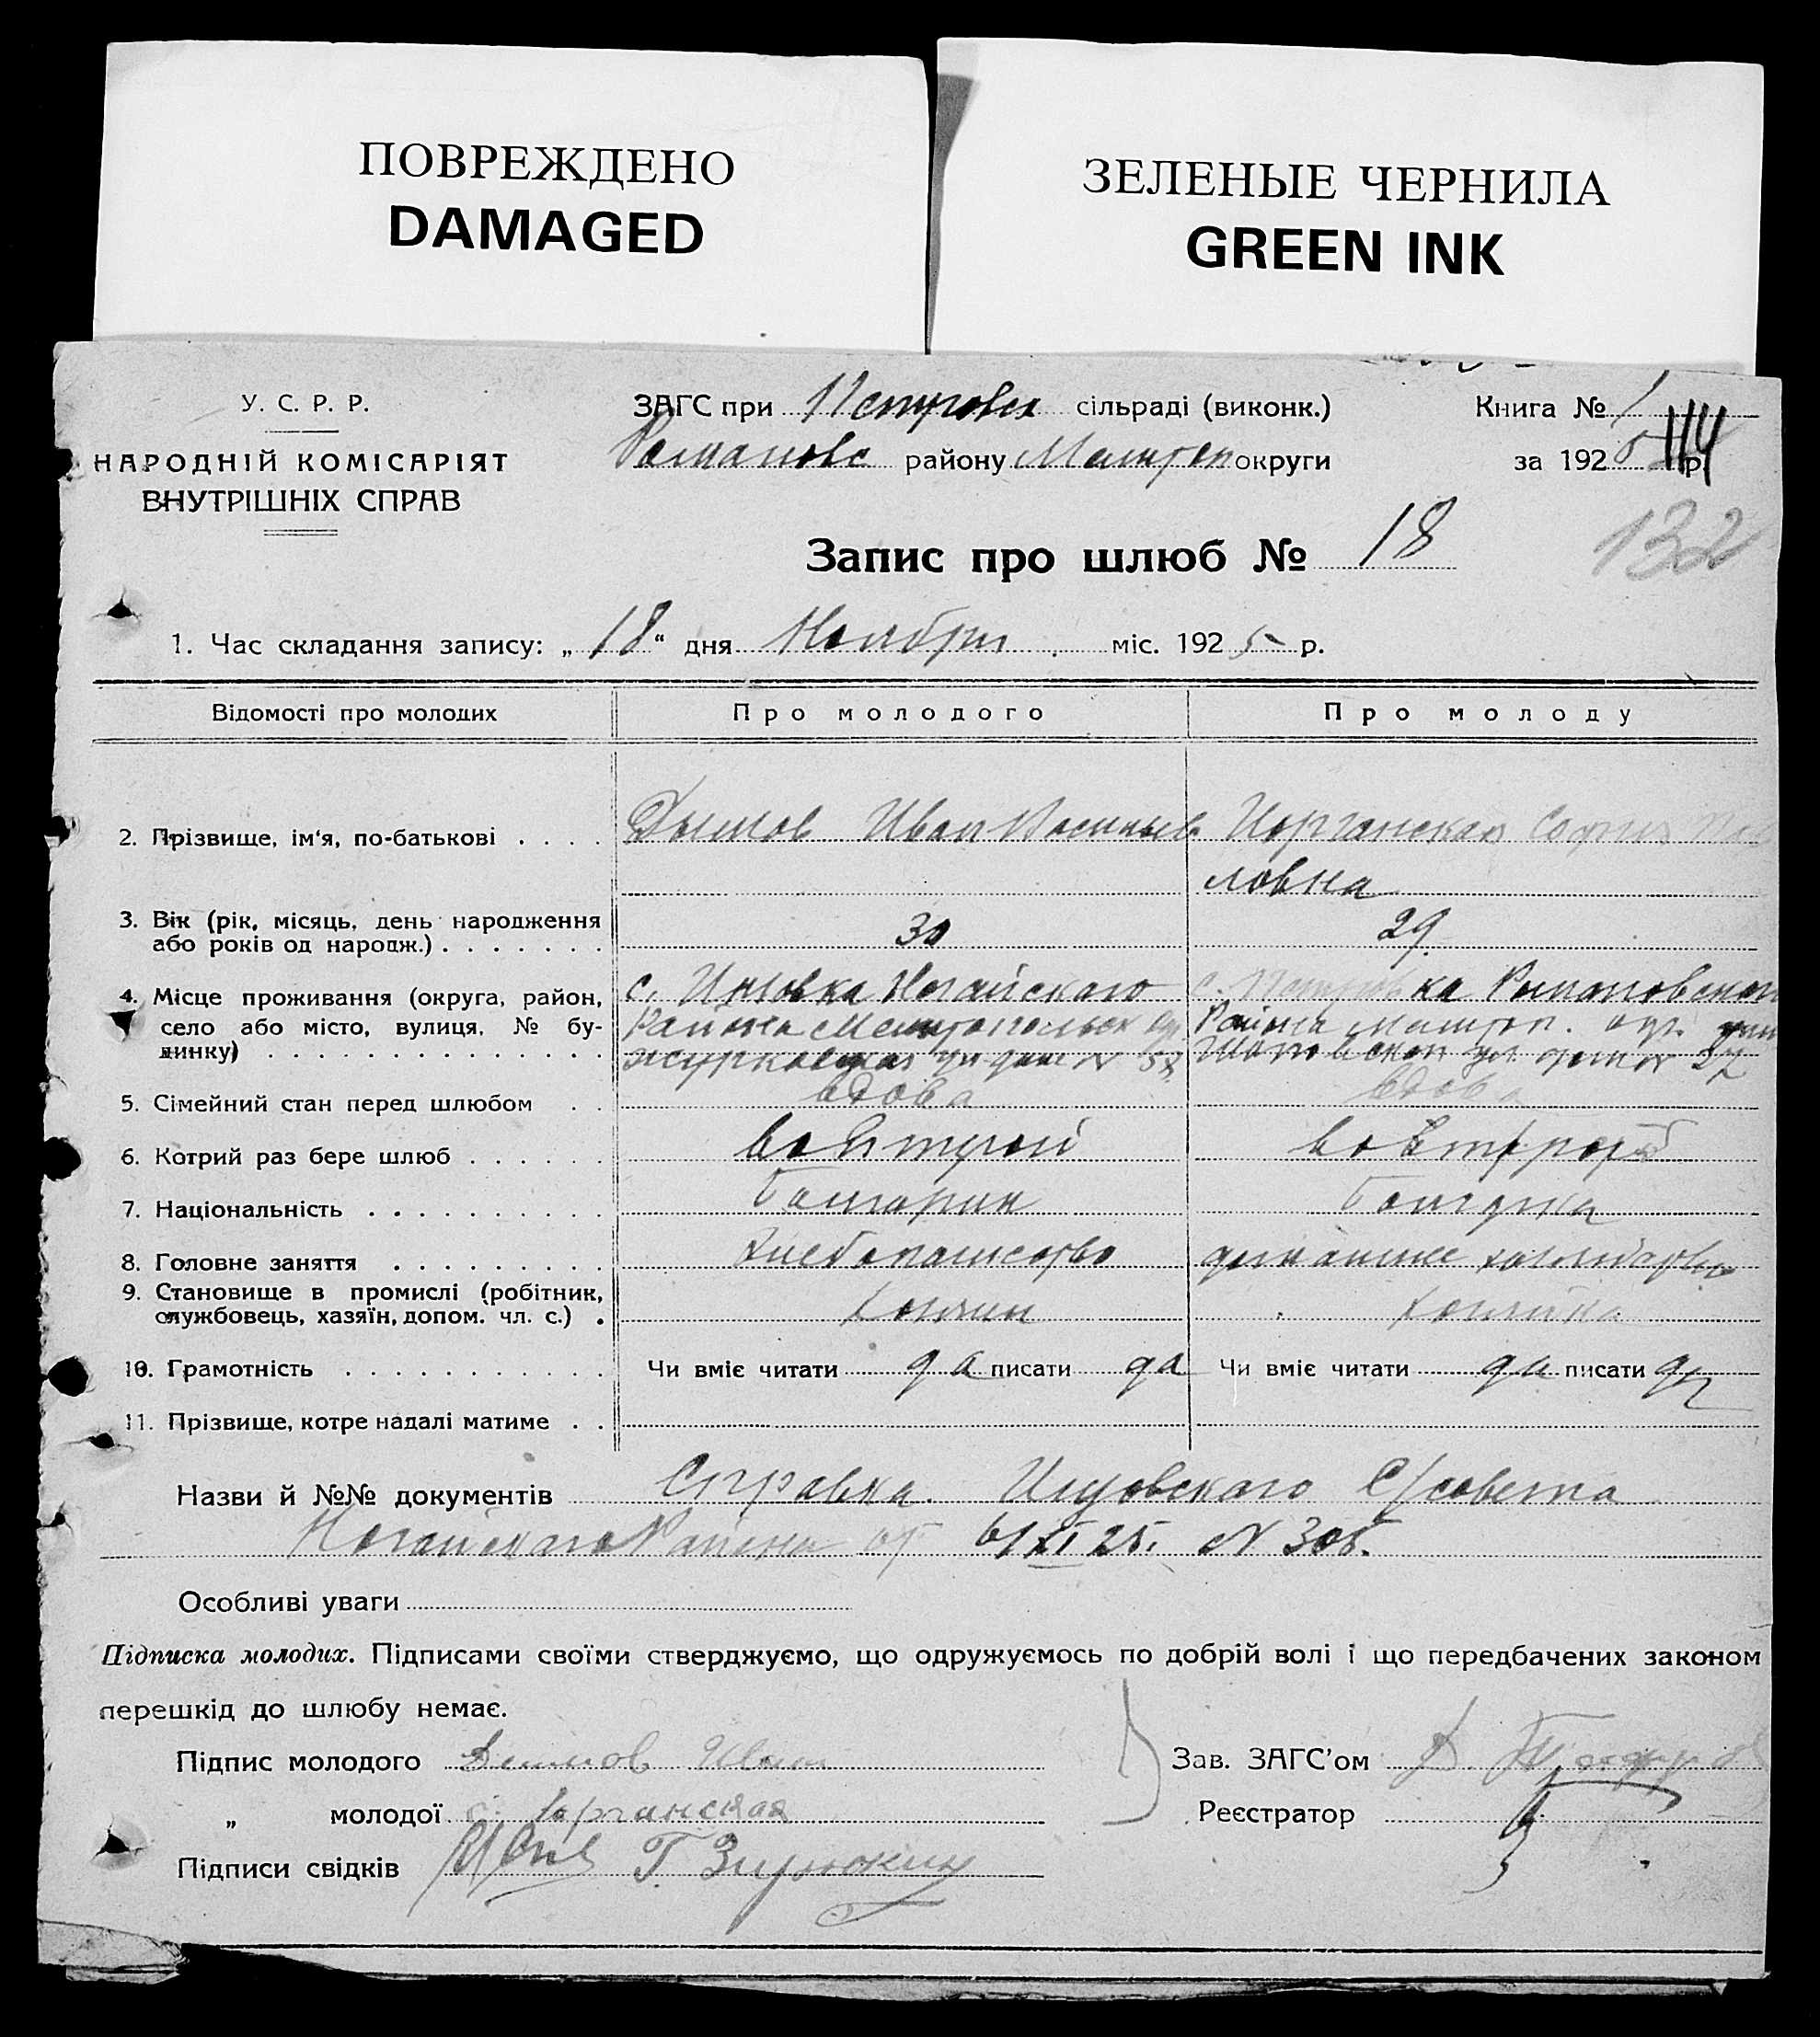 ПОВРЕЖДЕНО
DAMAGED
ЗЕЛЕНЫЕ ЧЕРНИЛА
GREEN INK
У. С. Р. Р.
НАРОДНІЙ КОМІСАРІЯТ
ВНУТРІШНІХ СПРАВ
ЗАГС при Петровск сільраді (виконк.)
Романовс району Мелитоп округи
Книга № 1
за 1925 р.
114
132
Запис про шлюб № 18
1. Час складання запису: „ 18 “ дня Ноября міс. 1925 р.
Відомості про молодих Про молодого Про молоду
2. Прізвище, ім'я, по-батькові . . . . Дымов Иван Васильев София
ловна
3. Вік (рік, місяць, день народження
або років од народж.) . . . . . . . 30 29
4. Місце проживання (округа, район, с. Ногайскаго с. Петровка Романовского
село або місто, вулиця, № бу- Района Мелитопольск Района Мелитоп. окр.
динку) . . . . . . . . . . . . . . дом №
5. Сімейний стан перед шлюбом . . вдова вдова
6. Котрий раз бере шлюб . . . . . . во Второй во Второй
7. Національність . . . . . . . . . . Болгарин Болгарка
8. Головне заняття . . . . . . . . . Хлебопашество домашнее хозяйство
9. Становище в промислі (робітник,
службовець, хазяїн, допом. чл. с.) . Хозяин хозяйка
10. Грамотність . . . . . . . . . . . Чи вміє читати да писати да Чи вміє читати да писати да
11. Прізвище, котре надалі матиме . .
Назви й №№ документів Справка С/совета
Ногайского Района от 6/XI 25. № 305.
Особливі уваги
Підписка молодих. Підписами своїми стверджуємо, що одружуємось по добрій волі і що передбачених законом
перешкід до шлюбу немає.
Підпис молодого Дымов Иван Зав. ЗАГС'ом
„ молодої Реєстратор
Підписи свідків Г.